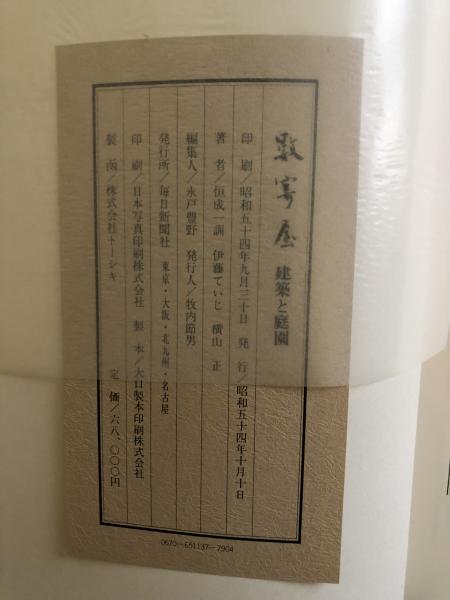 数寄屋 建築と庭園
印 刷/昭和五十四年九月三十日 発 行/昭和五十四年十月十日
著 者/恒成一訓 伊藤ていじ 横山 正
編集人/永戸豊野 発行人/牧内節男
発行所/毎日新聞社 東京・大阪・北九州・名古屋
印 刷/日本写真印刷株式会社 製 本/大口製本印刷株式会社
製 函/株式会社トーシキ 定 価/六八、〇〇〇円
0670—651137—7904